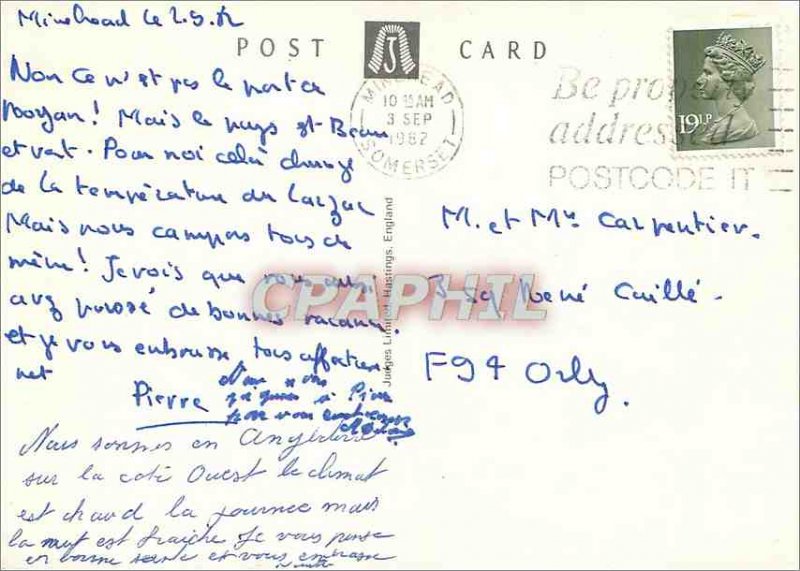 Minehead le 2.9.82
POST CARD
Non ce n'est pas le port de
Royan! Mais le pays est Beau
et vert. Pour moi celà change
de la température du Larzac
Mais nous campons tous de
même! Je vois que vous aussi
avez passé de bonnes vacances.
et je vous embrasse tous affectueu
ment
Pierre
à Pierre
pour vous embrasser
Nous sommes en Angleterre
sur la coté Ouest le climat
est chaud la journee mais
la nuit est fraiche Je vous pense
en bonne santé et vous embrasse
MINEHEAD
10 15 AM
3 SEP
1982
SOMERSET
Be properly
addressed
POSTCODE IT
19½P
Judges Limited, Hastings, England
M. et Mme Carpentier.
3 Sq René Caillé.
F94 Orly.
CPAPHIL